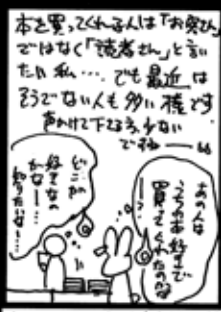 本を買ってくれる人は「お客さん」
ではなく「読者さん」と言い
たい私…。でも最近は
そうでない人も多い様です
声かけて下さる方、少ない
ですね
あの人は
うちのお話すきで
買ってくれたのかな
ー…?
どこが
好きなの
かなー…
知りたいなー…